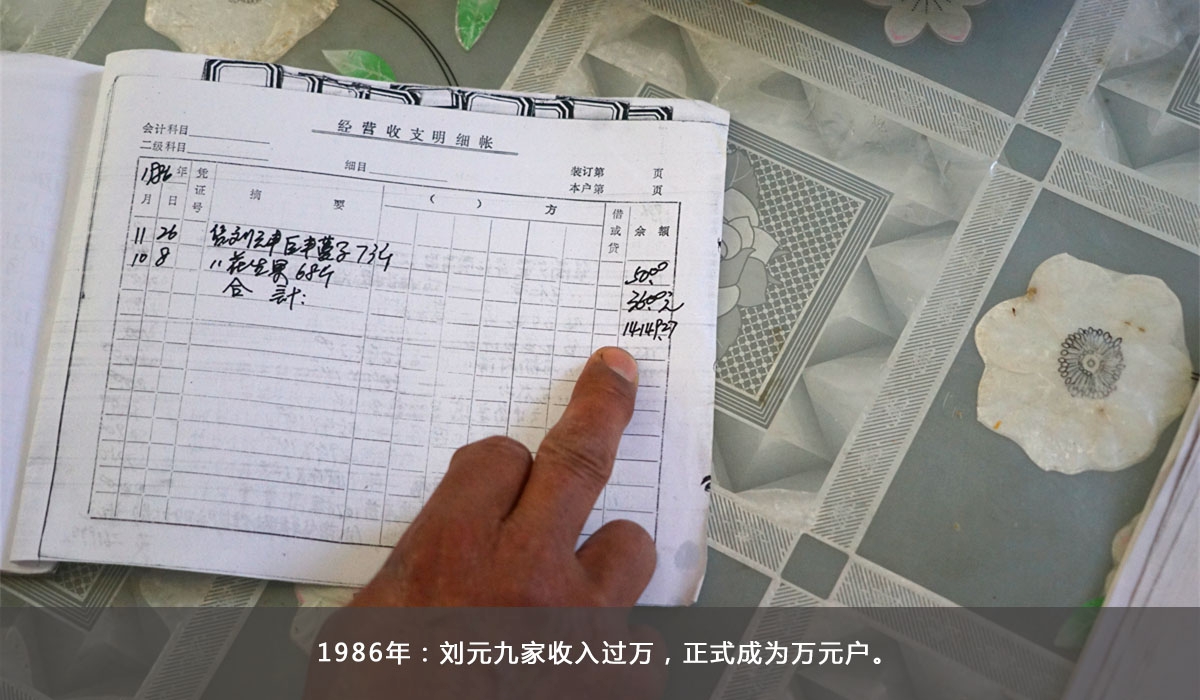 经营收支明细帐
会计科目
二级科目
细目
装订第 页
本户第 页
1986年 凭证号 摘要 ( ) 方 借或贷 余额
月 日
11 26
10 8 〃花生果 68斤
合 计:
1986年：刘元九家收入过万，正式成为万元户。